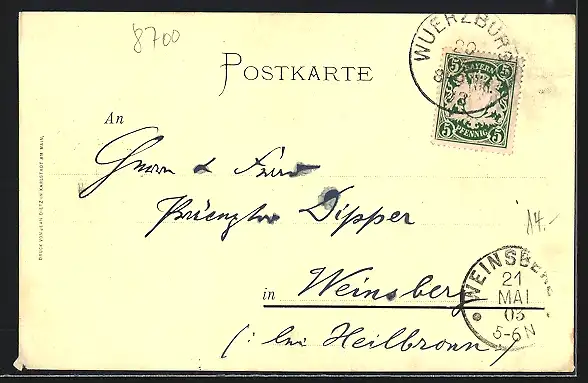 8700
WUERZBURG
20
BAYERN
5 5
5 PFENNIG 5
POSTKARTE
An
Herrn & Frau
Dipper
14.-
in Weinsberg
(: bei Heilbronn)
WEINSBERG
21
MAI
03
5-6N
DRUCK VON JEAN DIETZ IN KARLSTADT AM MAIN.